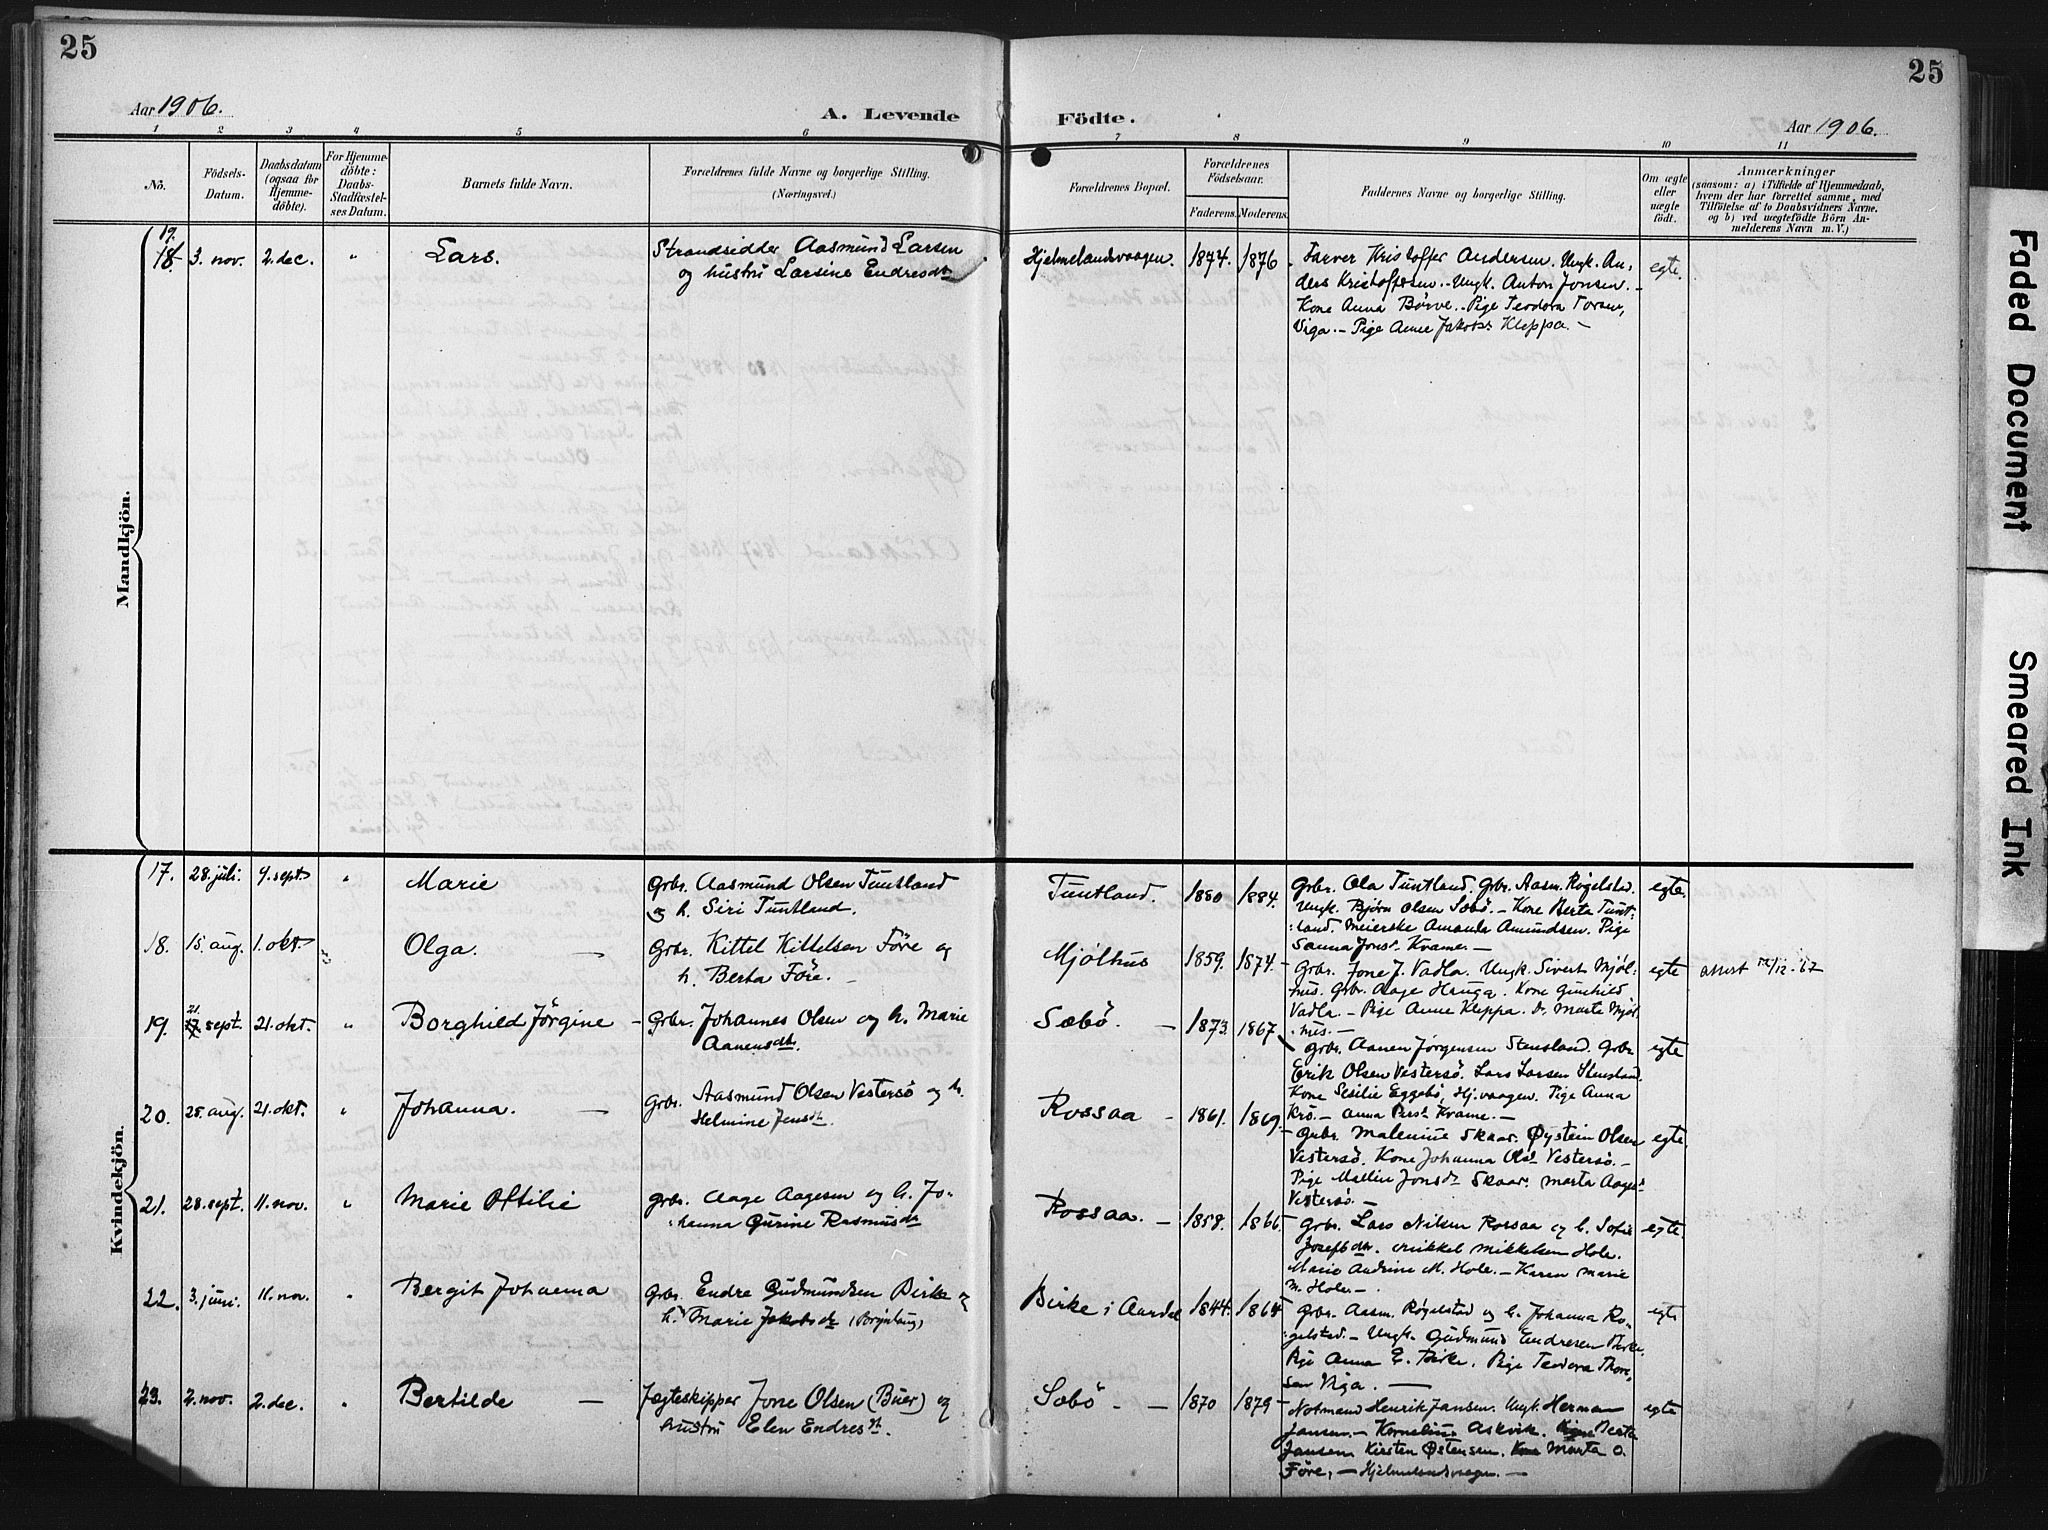 25
25
Aar 1906.
A. Levende
Födte.
Aar 1906.
1 2 3 4 5 6 7 8 9 10 11
No.
Födsels-
Datum.
Daabsdatum
(ogsaa for
Hjemme-
döbte).
For Hjemme-
döbte:
Daabs-
Stadfæstel-
ses Datum.
Barnets fulde Navn.
Forældrenes fulde Navne og borgerlige Stilling.
(Næringsvei.)
Forældrenes Bopæl.
Forældrenes
Födselsaar.
Faderens. Moderens.
Faddernes Navne og borgerlige Stilling.
Om ægte
eller
uægte
födt.
Anmærkninger
(saasom: a) i Tilfælde af Hjemmedaab,
hvem der har forrettet samme, med
Tilföielse af to Daabsvidners Navne.
og b) ved uægtefödte Börn An-
melderens Navn m. V.)
Mandkjön.
19.
18. 3. nov. 2. dec. " Lars.
Strandsidder Aasmund Larsen
og hustru Larsine Endresdt.
Hjelmelandsvaagen. 1874. 1876
Farver Kristoffer Andersen. Ungk. An-
ders Kristoffersen. - Ungk. Anton Jonsen. -
Kone Anna Børve. - Pige Teodora Torsen,
Viga. - Pige Anne Jakobs Kleppa. -
egte.
Kvindekjön.
17. 28. juli. 9. sept. " Marie
Grbr. Aasmund Olsen Tuntland
og h. Siri Tuntland.
Tuntland. 1880 1884.
Grbr. Ola Tuntland. Grbr. Aasm. Røgelstad.
Ungk. Bjørn Olsen Sæbö. - Kone Berta Tunt-
land. Meierske Amanda Amundsen. Pige
Sanna Jonsd. Kvame. -
egte.
18. 15. aug. 1. okt. " Olga.
Grbr. Kittel Kittelsen Före og
h. Berta Före. -
Mjölhus 1859. 1874. -
Grbr. Jone J. Vadla. Ungk. Sivert Mjöl-
hus. Grbr. Aage Hauga. Kone Gunhild
Vadla. - Pige Anne Kleppa. Do. Marta Mjöl-
hus. -
egte
19. 21. sept. 21. okt. " Borghild Jörgine -
Grbr. Johannes Olsen og h. Marie
Aanensdt.
Sæbö. - 1873. 1867
Grbr. Aanen Jørgensen Stensland. Grbr.
Erik Olsen Vestersö. Lars Larsen Stensland.
Kone Sesilie Eggebö, Hj.vaagen. Pige Anna
Krö. - Anna Persd. Kvame. -
egte
20. 25. aug. 21. okt. " Johanna. -
Grbr. Aasmund Olsen Vestersö og h.
Helmine Jensdt.
Rossaa - 1861. 1869. -
Grbr. Malenius Skaar. Øystein Olsen
Vestersö. Kone Johanna Olsd. Vestersö. -
Pige Malline Jonsdt. Skaar. Marta Aages
Vestersö. -
egte.
21. 28. sept. 11. nov. " Marie Ottilie
Grbr. Aage Aagesen og h. Jo-
hanna Gurine Rasmusdt.
Rossaa. - 1858. 1866. -
Grbr. Lars Nilsen Rossaa og h. Sofie
Josefsdtr. Mikkel Mikkelsen Hole.
Marie Andrine M. Hole. - Karen Marie
M. Hole. -
egte.
22. 3. juni. 11. nov. " Bergit Johanna
Grbr. Endre Gudmundsen Birke og
h. Marie Jakobsdt.
Birke i Aardal 1844. 1864. -
Grbr. Aasm. Røgelstad og h. Johanna Rö-
gelstad. - Ungk. Gudmund Endresen Birke.
Pige Anna E. Birke. Pige Teodora Thor-
sen Viga. -
egte
23. 2. nov. 2. dec. " Bertilde -
Jægteskipper Jone Olsen (Buer) og
hustru Elen Endresdt.
Sæbö. - 1870 1879 -
Notmand Henrik Jansen. Ungk. Herman
Jansen. - Kornelius Askvik. Berta
Jansen Kirsten Østensen. Marta O.
Före, - Hjelmelandsvaagen. -
egte
Faded Document
Smeared Ink